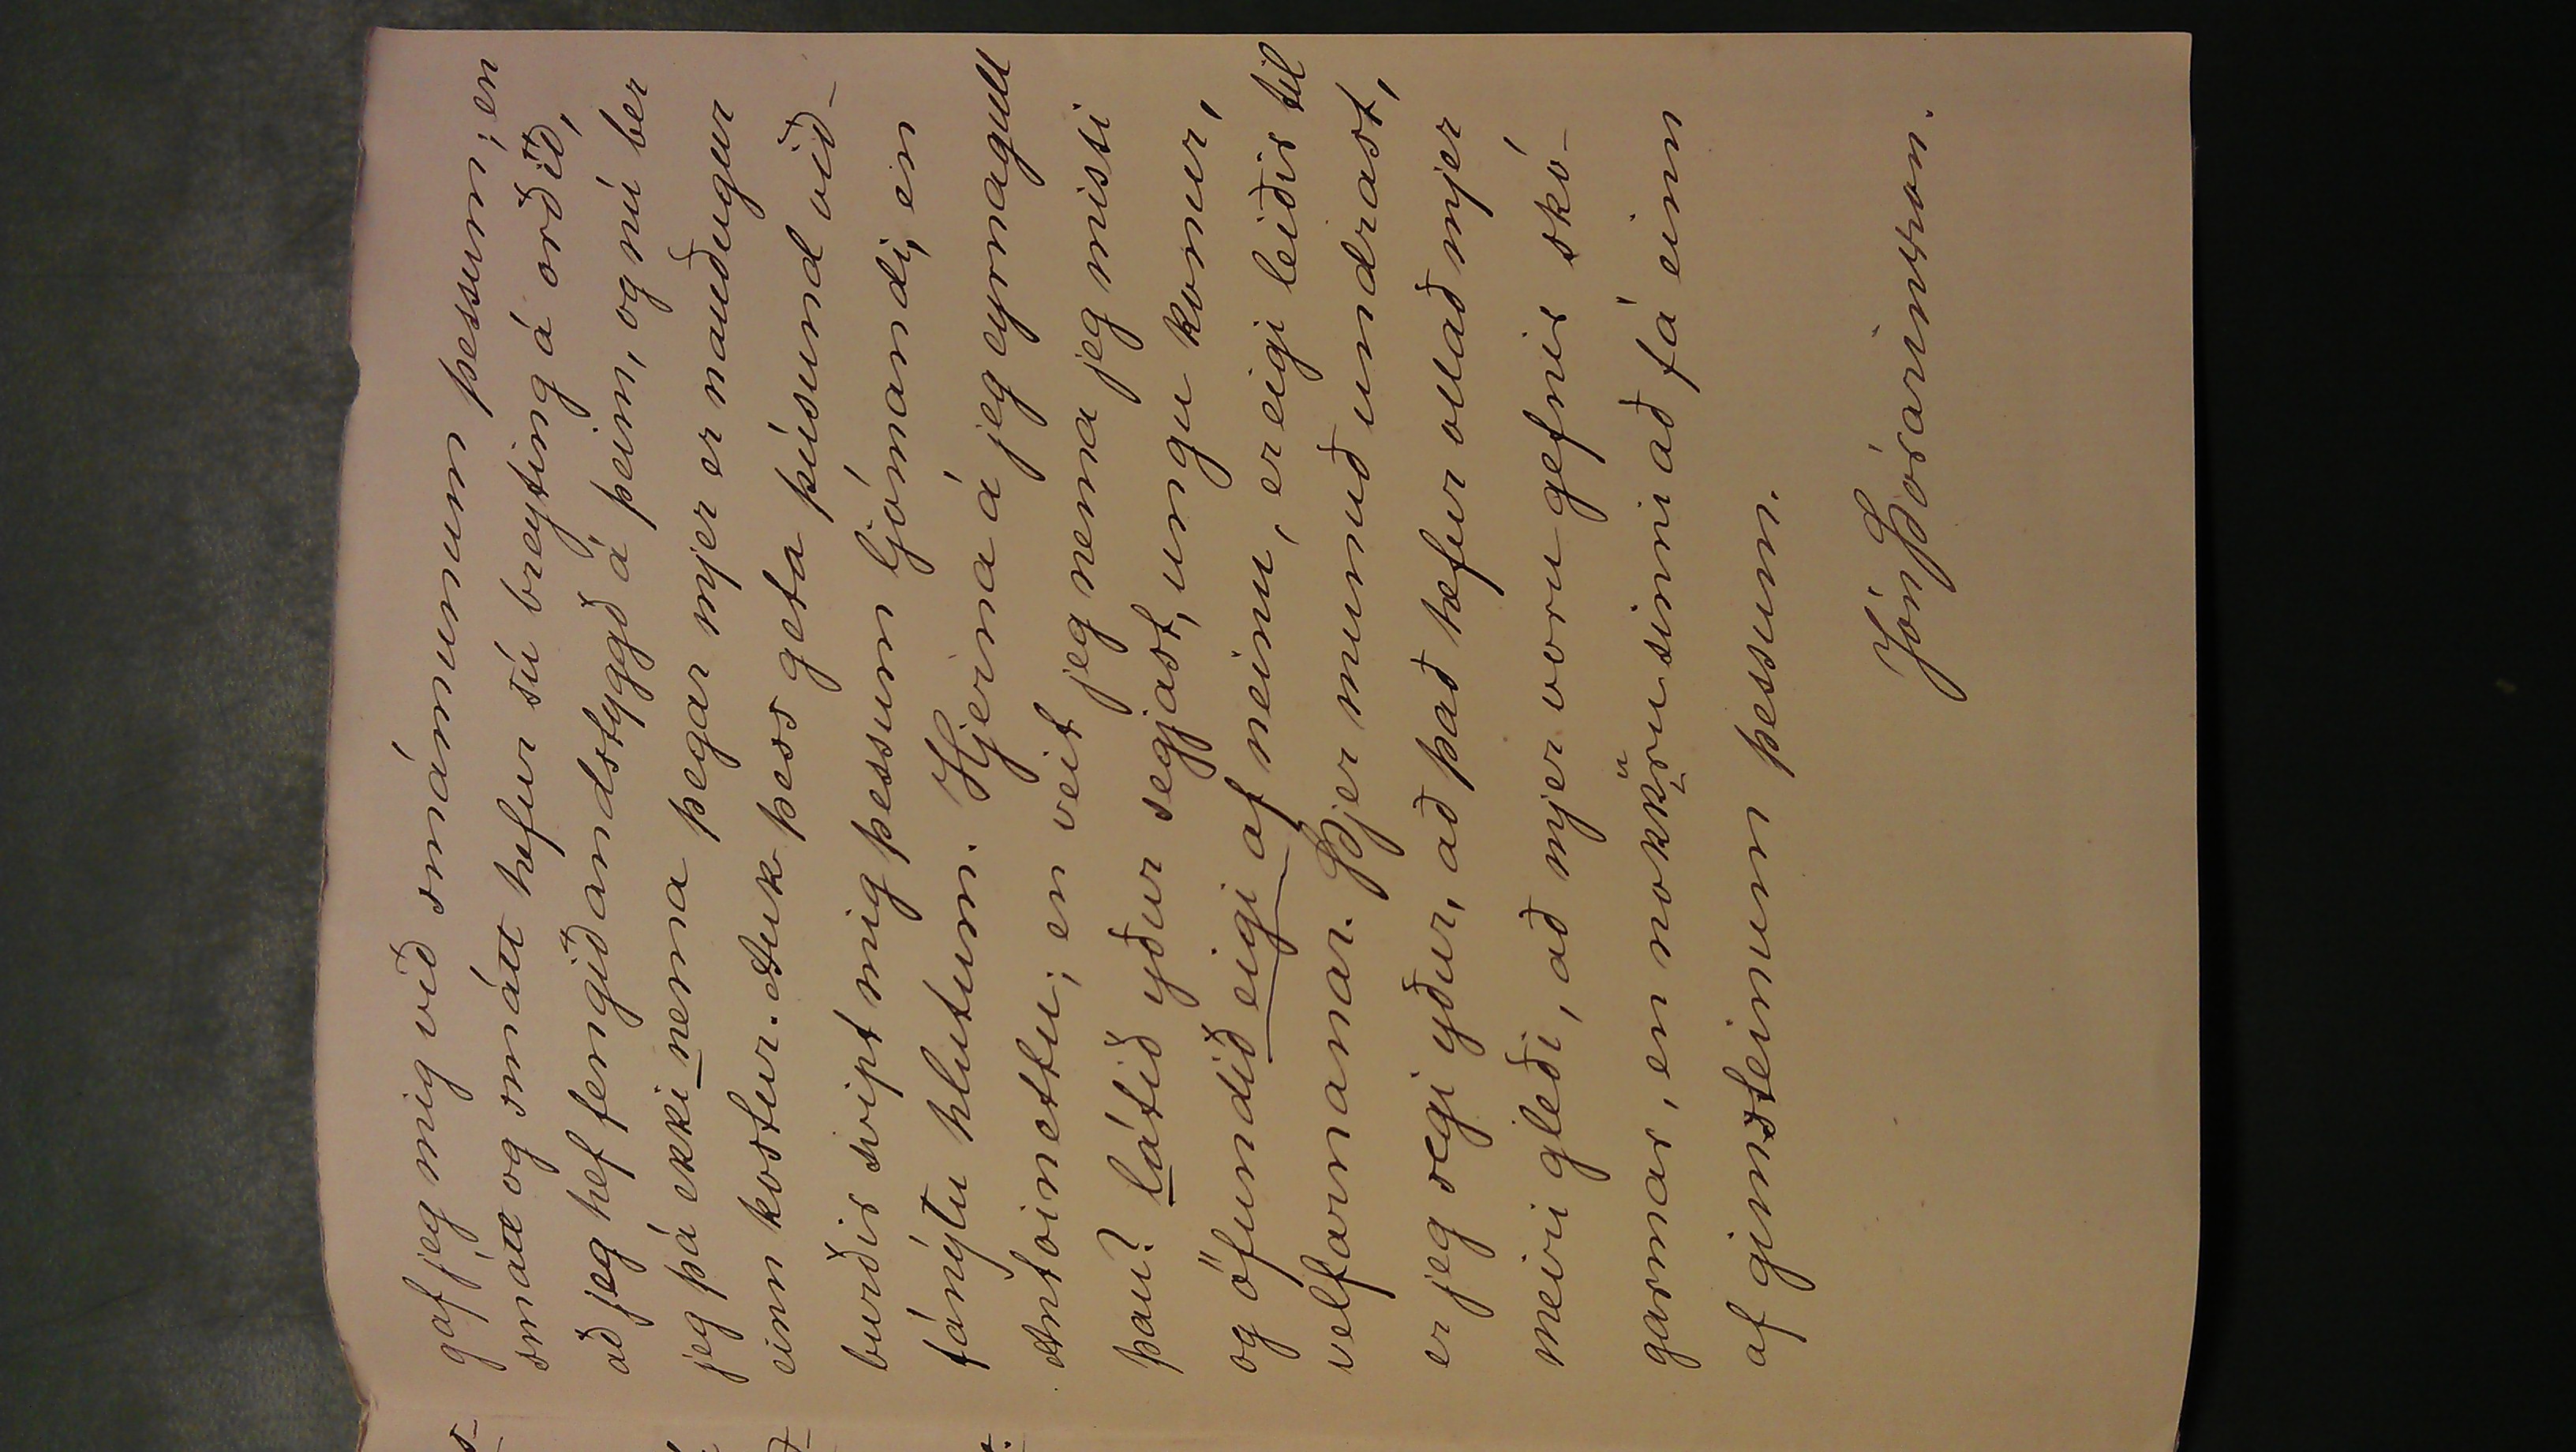 gaf jeg mig við smámunum þessum; en
smátt og smátt hefur sú breyting á orðið,
að jeg hef fengið andstyggð á þeim, og nú ber
jeg þá ekki nema þegar mjer er nauðugur
einn kostur. Auk þess geta þúsund við-
burðir svipt mig þessum ljómandi, en
fánýtu hlutum. Hjerna á jeg eyrnagull
Antoinettu; en veit jeg nema jeg missi
þau? látið yður segjast, ungu konur,
og öfundið eigi af neinu, er eigi leiðir til
velfarnanar. Þjer munuð undrast,
er jeg segi yður, að það hefur ollað mjer
meiri gleði, að mjer voru gefnir skó-
garmar, en nokkuru sinni að fá einn
af gimsteinum þessum.
Jón Þórarinsson.